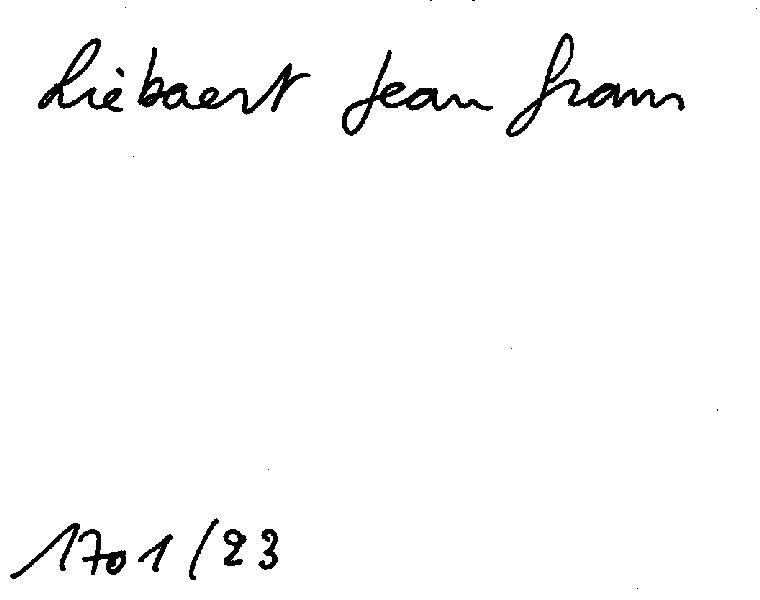 Liėbaert Jean Frans
1701/23